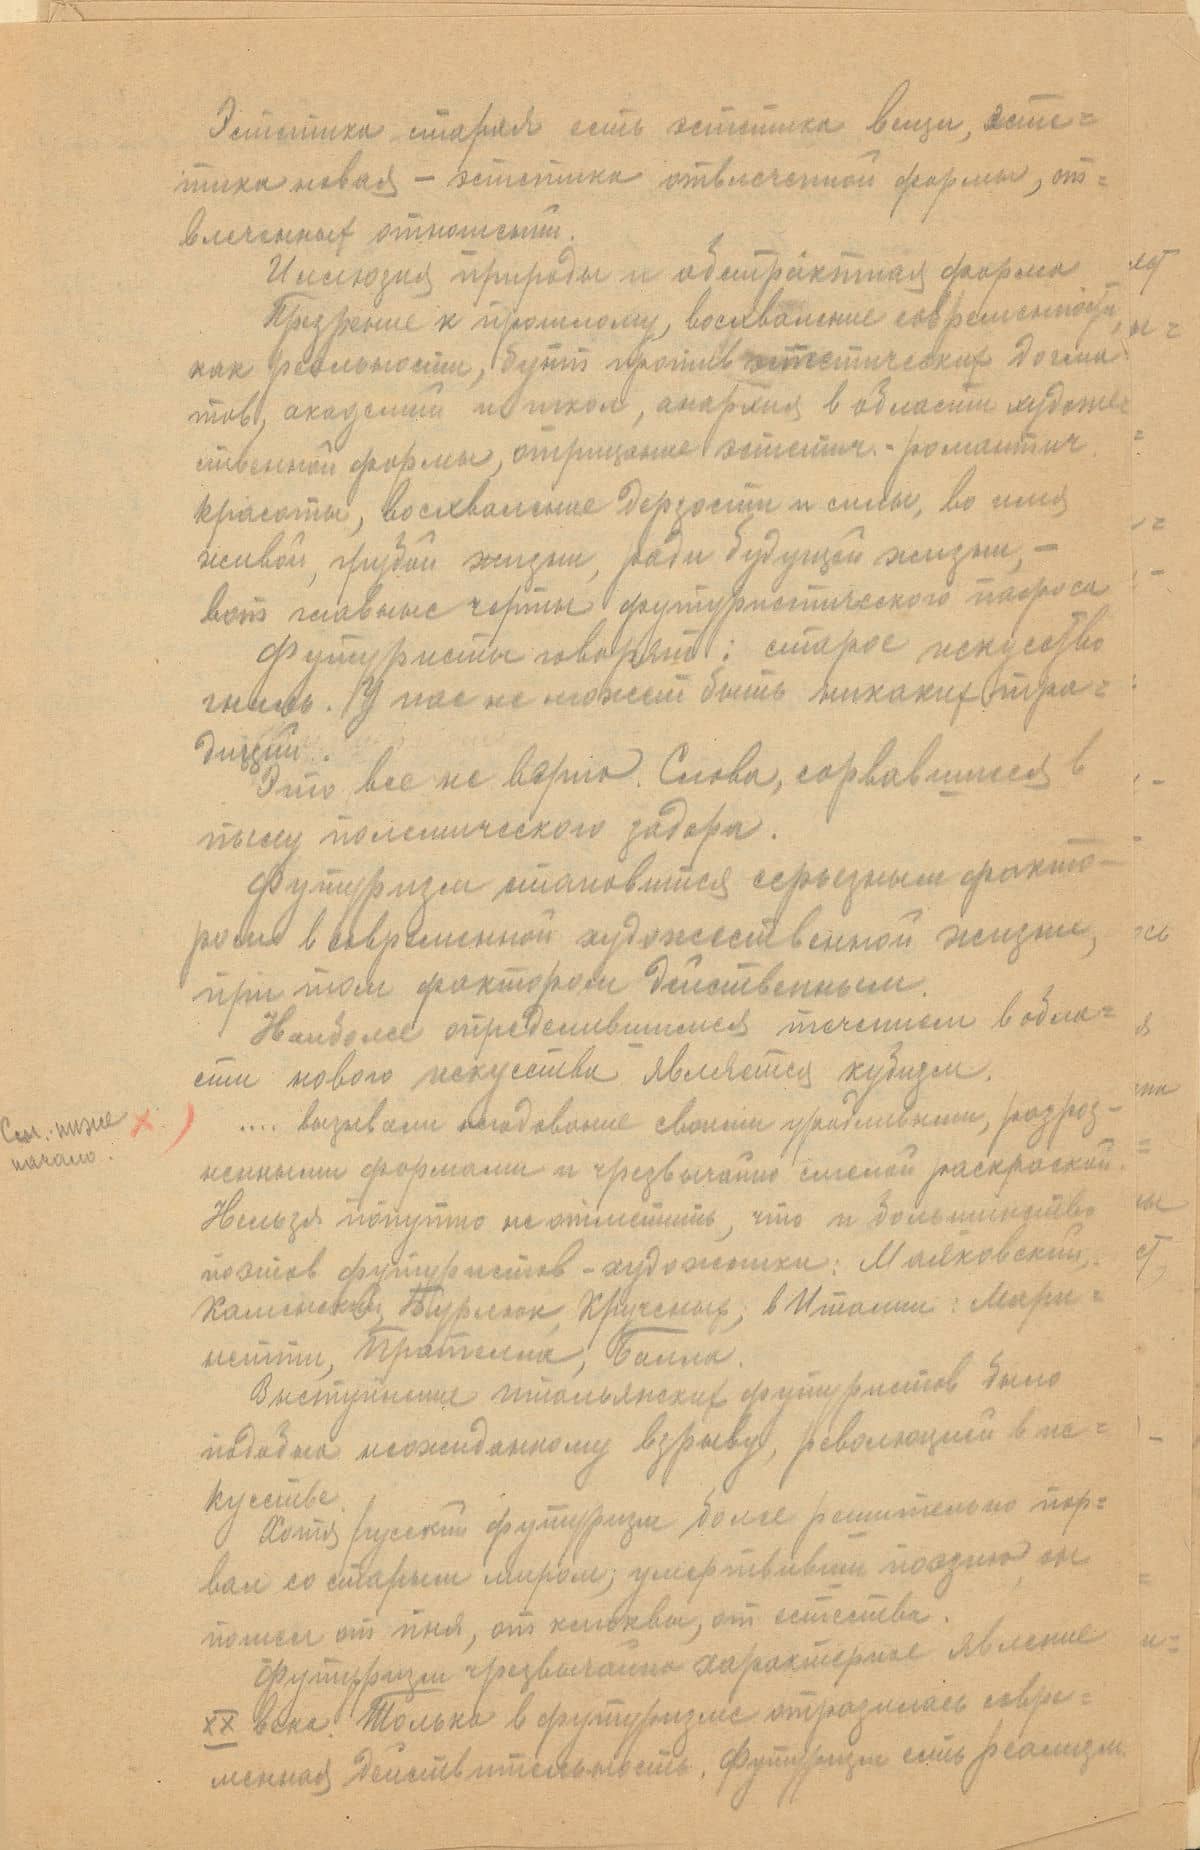 Эстетика старая есть эстетика вещи, эсте=
тика новая – эстетика отвлеченной формы, от=
влеченных отношений.
Иллюзия природы и абстрактная форма
Презрение к прошлому, восхваление современности,
как реальности, бунт против эстетических догма
тов, академий и школ, анархия в области художе=
ственной формы, отрицание эстетич.-романтич.
красоты, восхваление дерзости и силы, во имя
живой, грубой жизни, ради будущей жизни, –
вот главные черты футуристического пафоса
Футуристы говорят: старое искусство
гниль. У нас не может быть никаких тра=
диций.
Это все не верно. Слова, сорвавшиеся в
пылу полемического задора.
Футуризм становится серьезным факто–
ром в современной художественной жизни,
при том фактором действенным.
Наиболее определившимся течением в обла=
сти нового искусства является кубизм.
См. ниже
начало.
х )
.... вызывали негодование своими уродливыми, разроз–
ненными формами и чрезвычайно смелой раскраской.
Нельзя попутно не отметить, что и большинство
поэтов футуристов – художники: Маяковский,
Каменский, Бурлюк, Крученых; в Италии: Мари=
нетти, Прателла, Балла.
Выступление итальянских футуристов было
подобно неожиданному взрыву, революцией в ис=
кусстве.
Хотя русский футуризм более решительно пор=
вал со старым миром, умертвивши поэзию, он
пошел от пня, от клюквы, от естества.
Футуризм чрезвычайно характерное явление
XX века. Только в футуризме отразилась совре=
менная действительность. Футуризм есть реализм